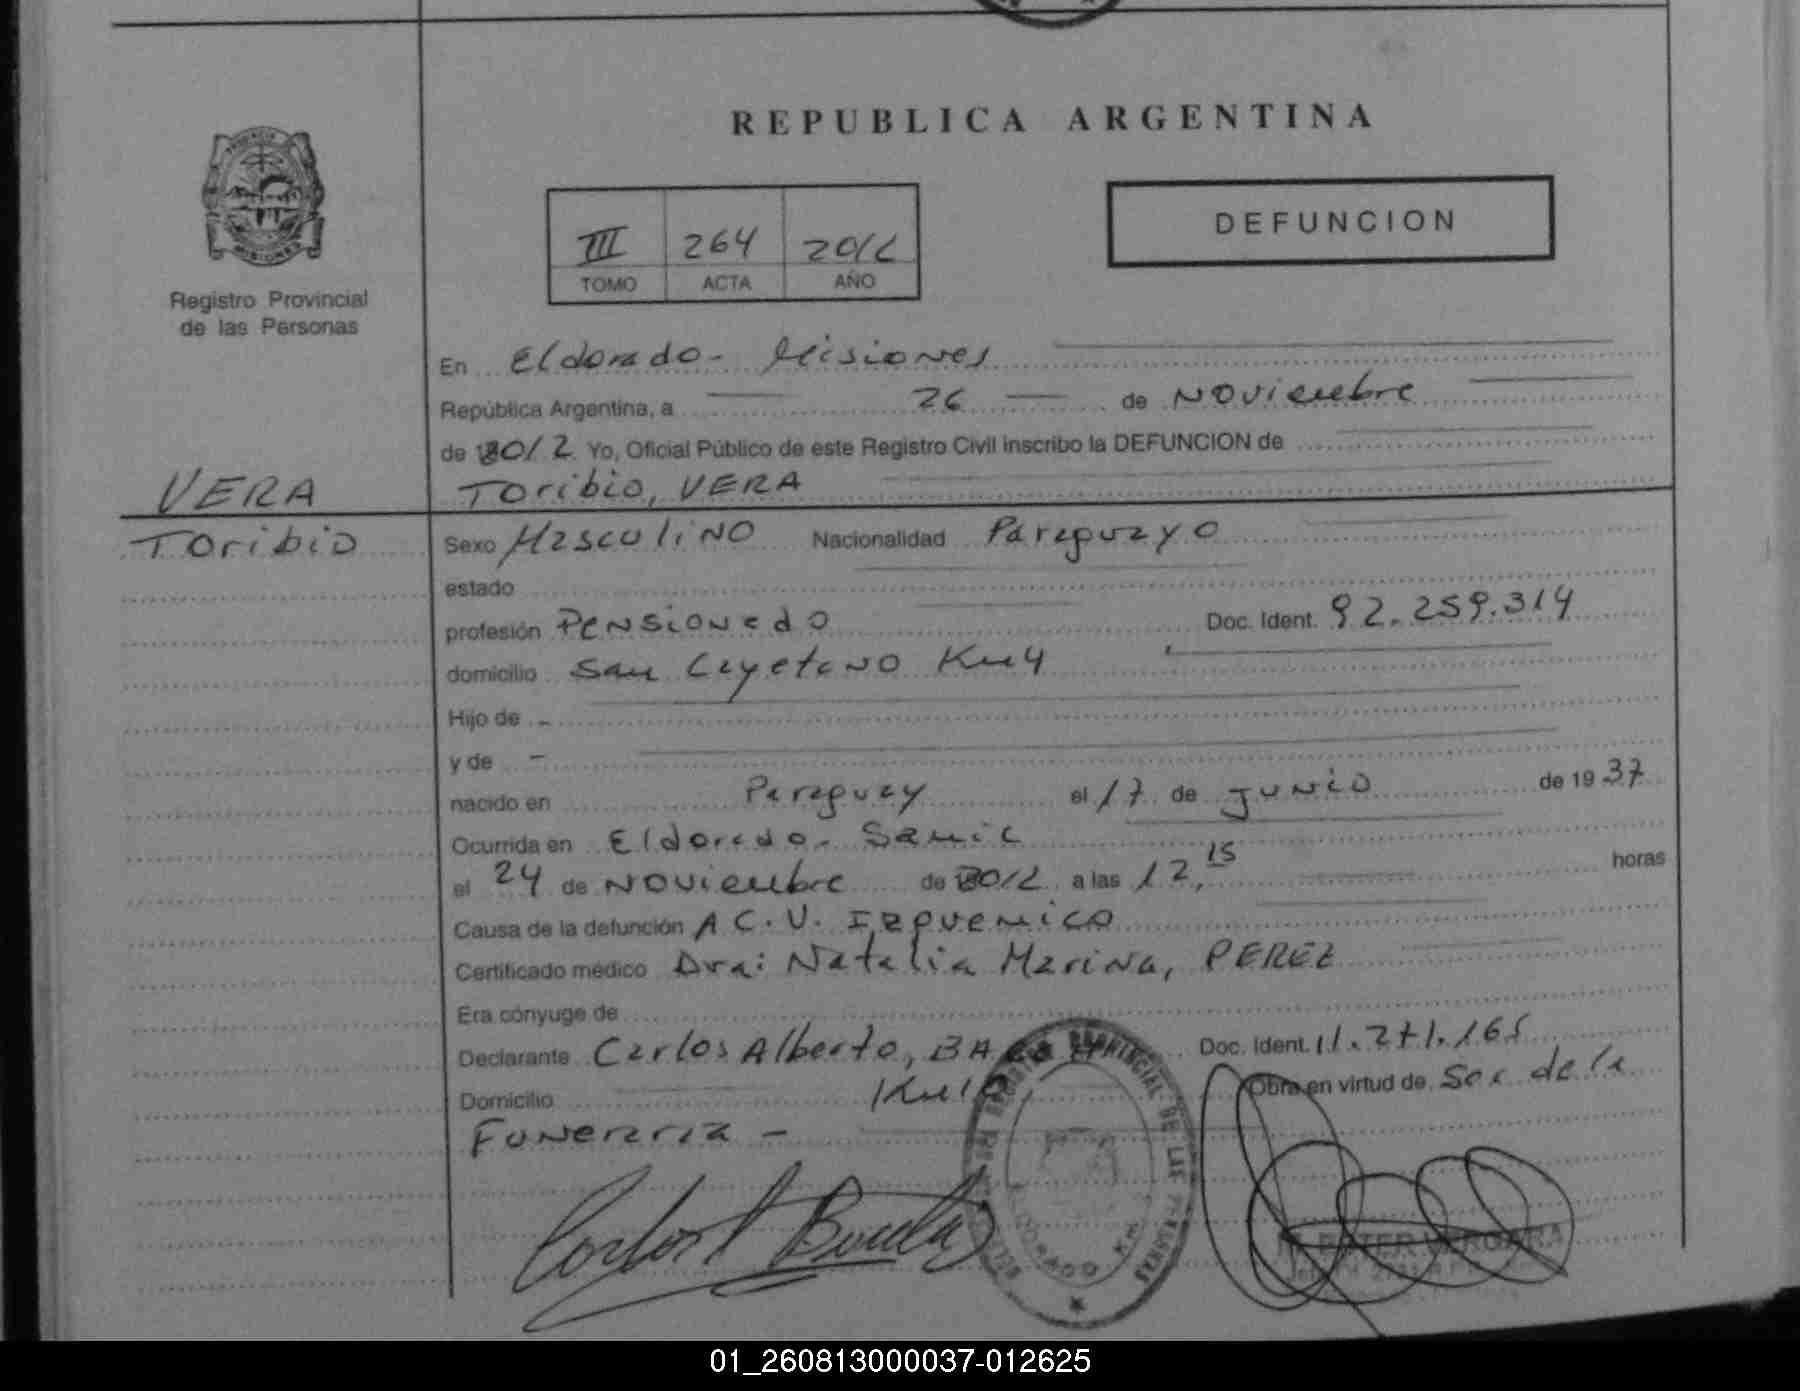 REPUBLICA ARGENTINA
MISIONES
Registro Provincial
de las Personas
III 264 2012
TOMO ACTA AÑO
DEFUNCION
En Eldorado - Misiones
República Argentina, a 26 de Noviembre
de 2012 Yo, Oficial Público de este Registro Civil inscribo la DEFUNCION de
VERA
Toribio
Toribio, VERA
Sexo Masculino Nacionalidad Paraguayo
estado
profesión Pensionado Doc. Ident. 92.259.314
domicilio San Cayetano Km 4
Hijo de -
y de -
nacido en Paraguay el 17 de junio de 19 37
Ocurrida en Eldorado - Samic
el 24 de Noviembre de 2012 a las 12,15 horas
Causa de la defunción A C. V. Izquemico
Certificado médico Dra: Natalia Marina, PEREZ
Era cónyuge de
Declarante Carlos Alberto, Doc. Ident. 11.271.165
Domicilio Km 10, Obra en virtud de Soc de la
Funeraria -
PROVINCIAL DE LAS PERSONAS
ELDORADO
ESTER VERGARA
01_260813000037-012625